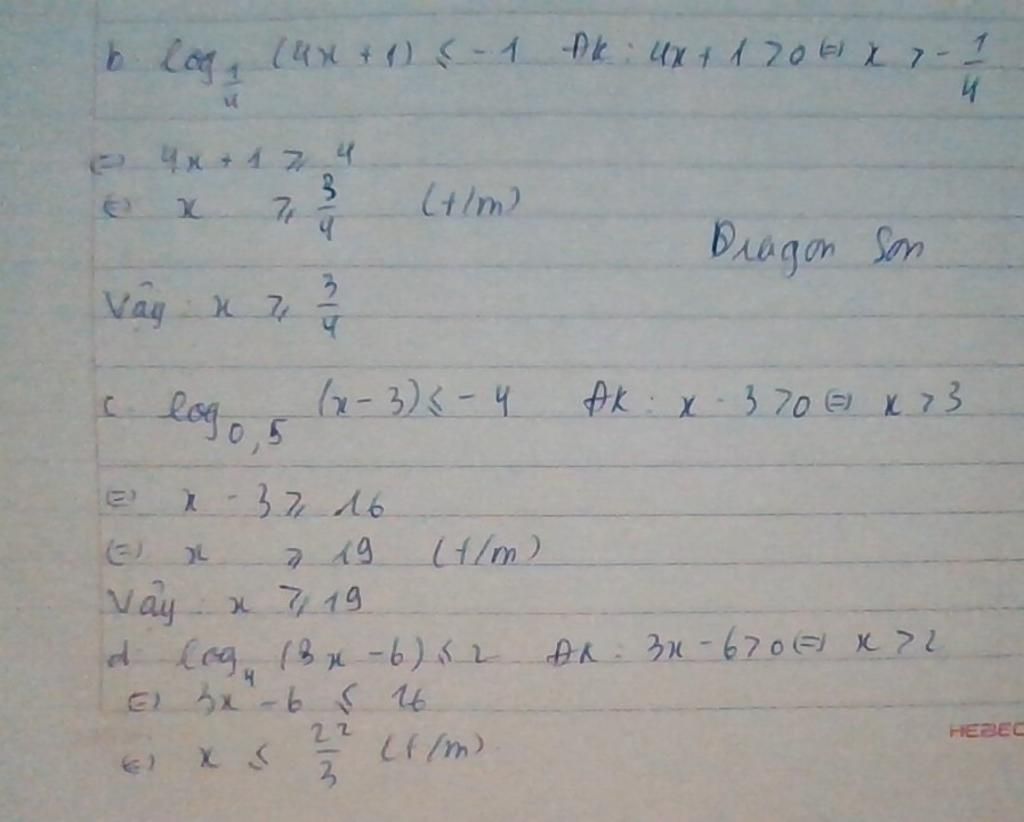 b. log_{1/4} (4x + 1) ≤ -1 ĐK: 4x + 1 > 0 ⇔ x > -1/4
⇔ 4x + 1 ≥ 4
⇔ x ≥ 3/4 (t/m)
Dragon Son
Vậy: x ≥ 3/4
c. log_{0,5} (x - 3) ≤ -4 ĐK: x - 3 > 0 ⇔ x > 3
⇔ x - 3 ≥ 16
⇔ x ≥ 19 (t/m)
Vậy: x ≥ 19
d. log_4 (3x - 6) ≤ 2 ĐK: 3x - 6 > 0 ⇔ x > 2
⇔ 3x - 6 ≤ 16
⇔ x ≤ 22/3 (t/m)
HEBEC